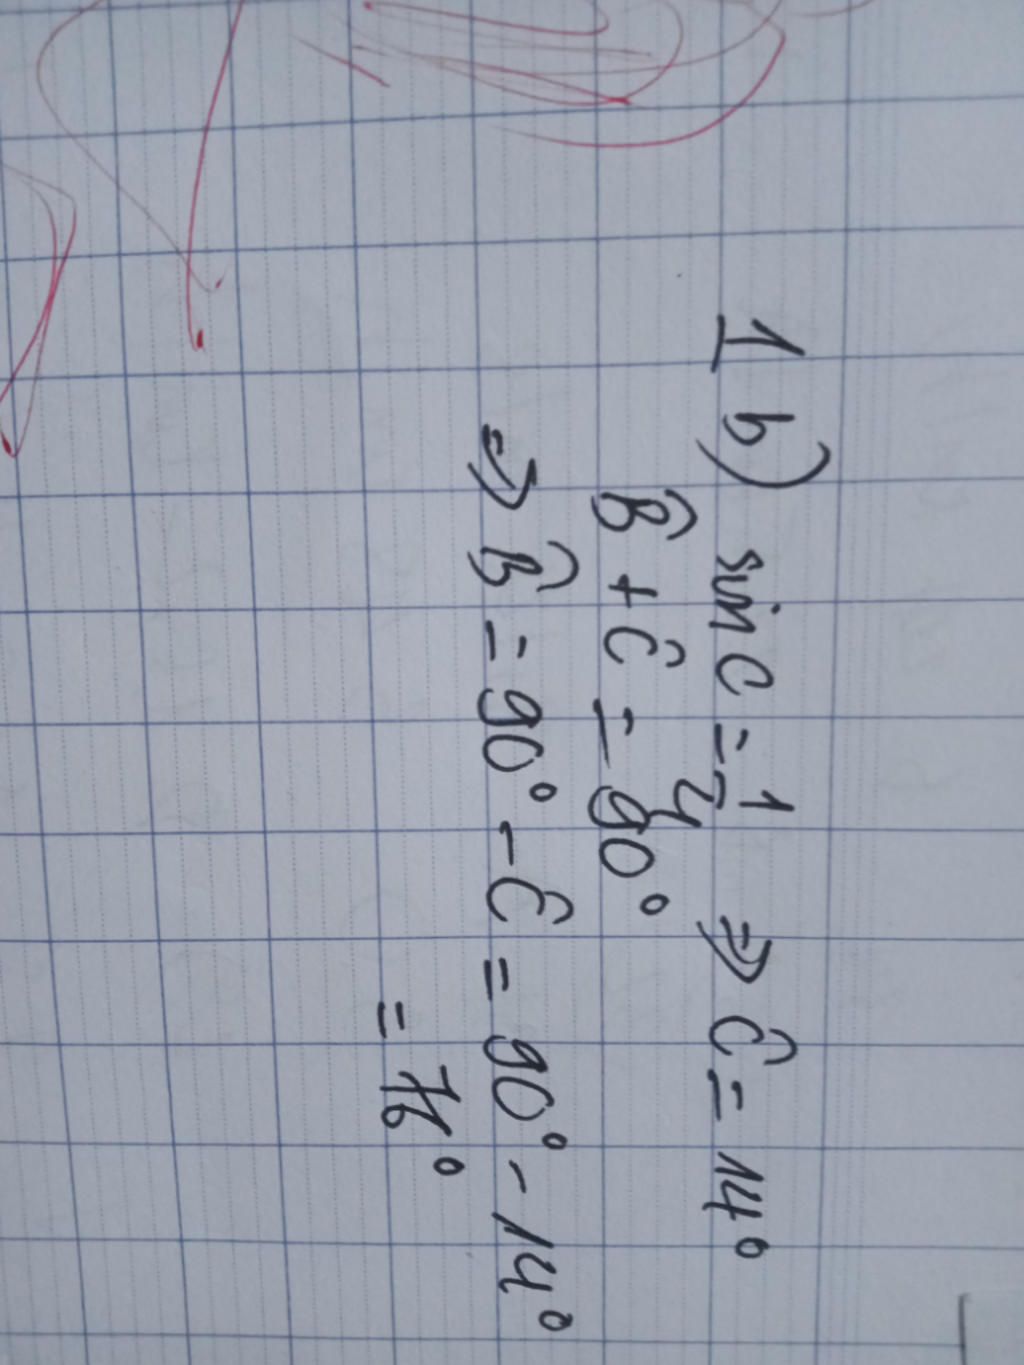 1 b) sin C = 1/4 ⇒ Ĉ = 14°
B̂ + Ĉ = 90°
⇒ B̂ = 90° - Ĉ = 90° - 14°
= 76°